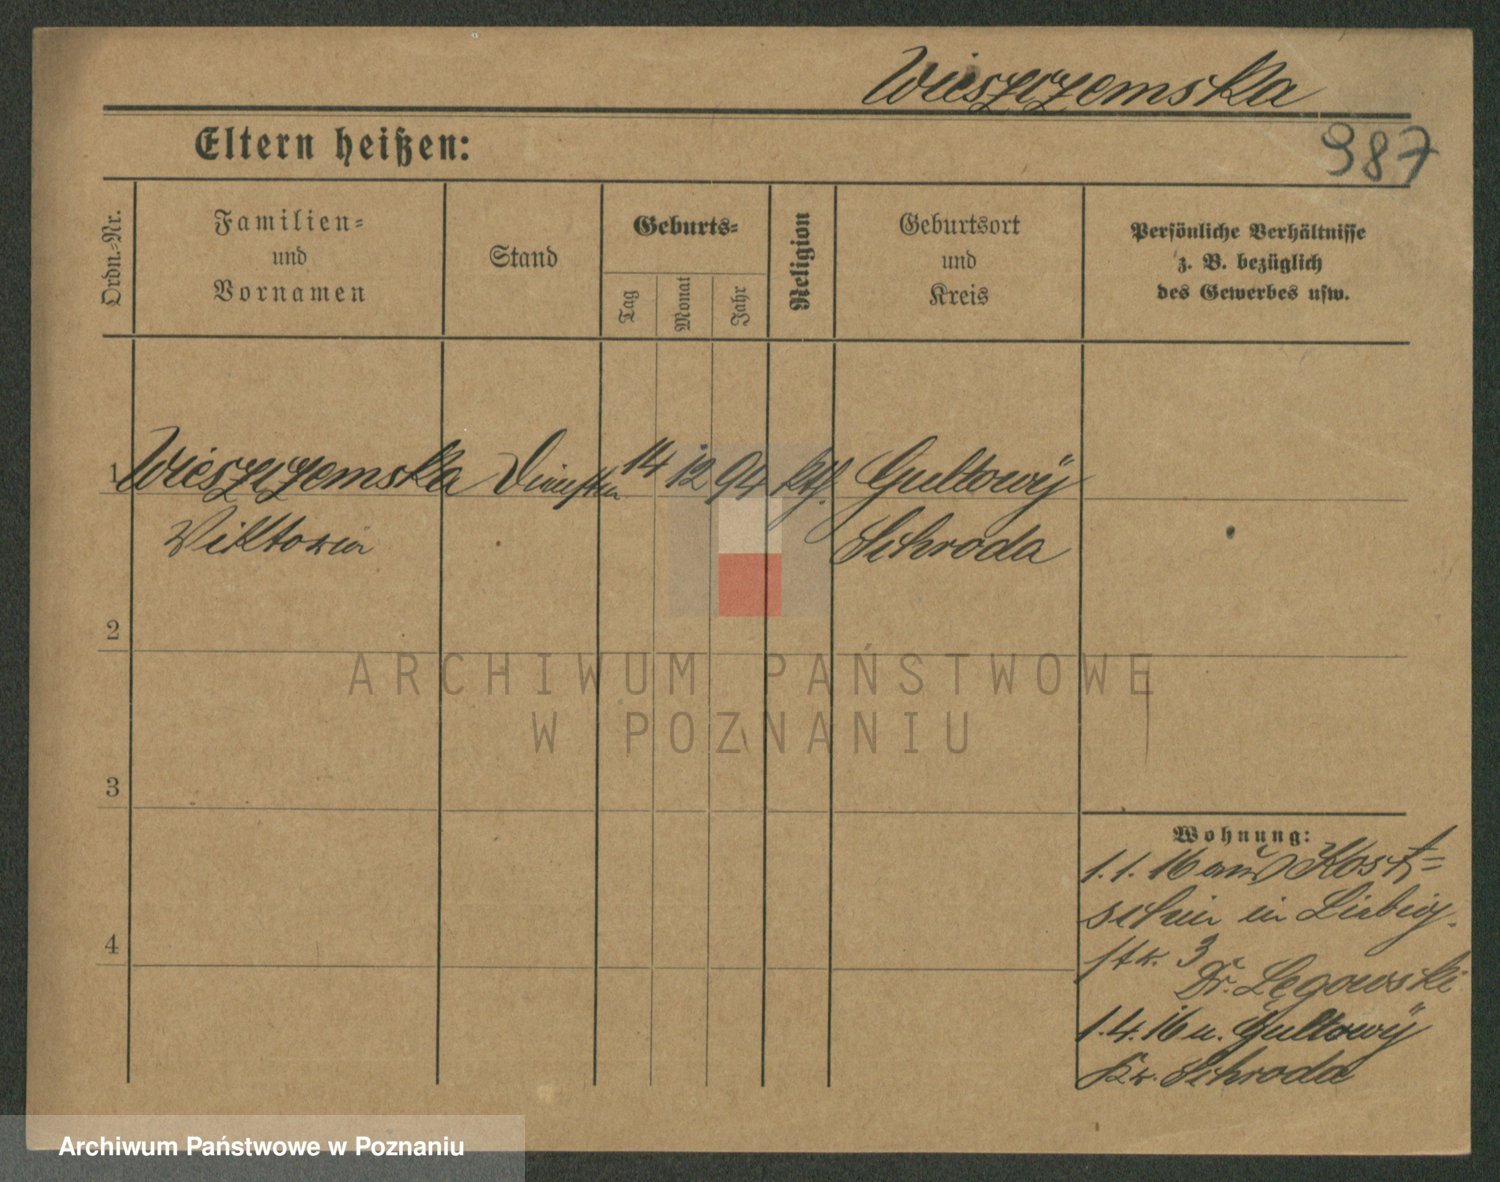 Wieszczemska
987
Eltern heißen:
Ordn.-Nr.
Familien-
und
Vornamen
Stand
Geburts-
Tag
Monat
Jahr
Religion
Geburtsort
und
Kreis
Persönliche Verhältnisse
z. B. bezüglich
des Gewerbes usw.
1 Wieszczemska 14 12 94 kth. Gultowÿ
Viktoria Schroda
2
ARCHIWUM PAŃSTWOWE
W POZNANIU
3
Wohnung:
1.1.16 aus Kost=
schin in Liebig
str. 3
Dr. Łęgowski
4
1.4.16 n. Gultowÿ
Kr. Schroda
Archiwum Państwowe w Poznaniu